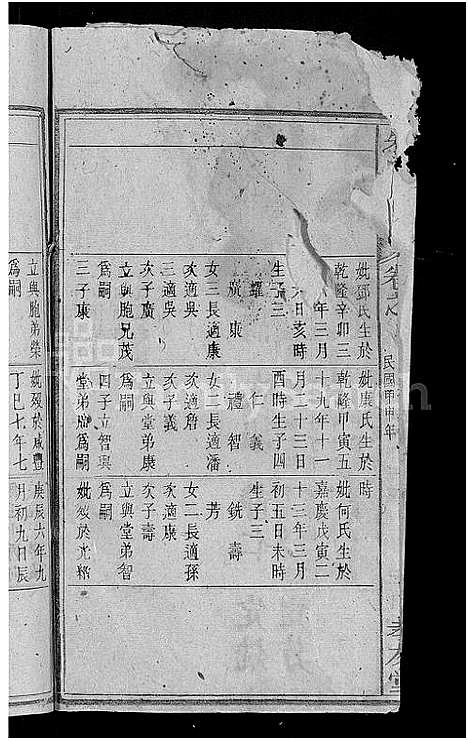 妣鄧氏生於
乾隆辛卯三
年三月
日亥時
生子三
耀
廣康
女三長適康
次適吳
三適吳
次子廣
立與胞兄茂
為嗣
三子康
立與胞弟榮
為嗣
妣康氏生於
乾隆甲寅五
十九年十一
月二十三日
酉時生子四
仁義
禮智
女二長適潘
次適詹
次子義
立與堂弟康
為嗣
四子立智與
堂弟席為嗣
妣歿於咸豐
丁巳七年七
時
妣何氏生於
嘉慶戊寅二
十三年三月
初五日未時
生子三
銑壽
芳
女二長適孫
次適康
次子壽
立與堂弟智
為嗣
妣歿於光緒
庚辰六年九
月初九日辰
民國甲申年